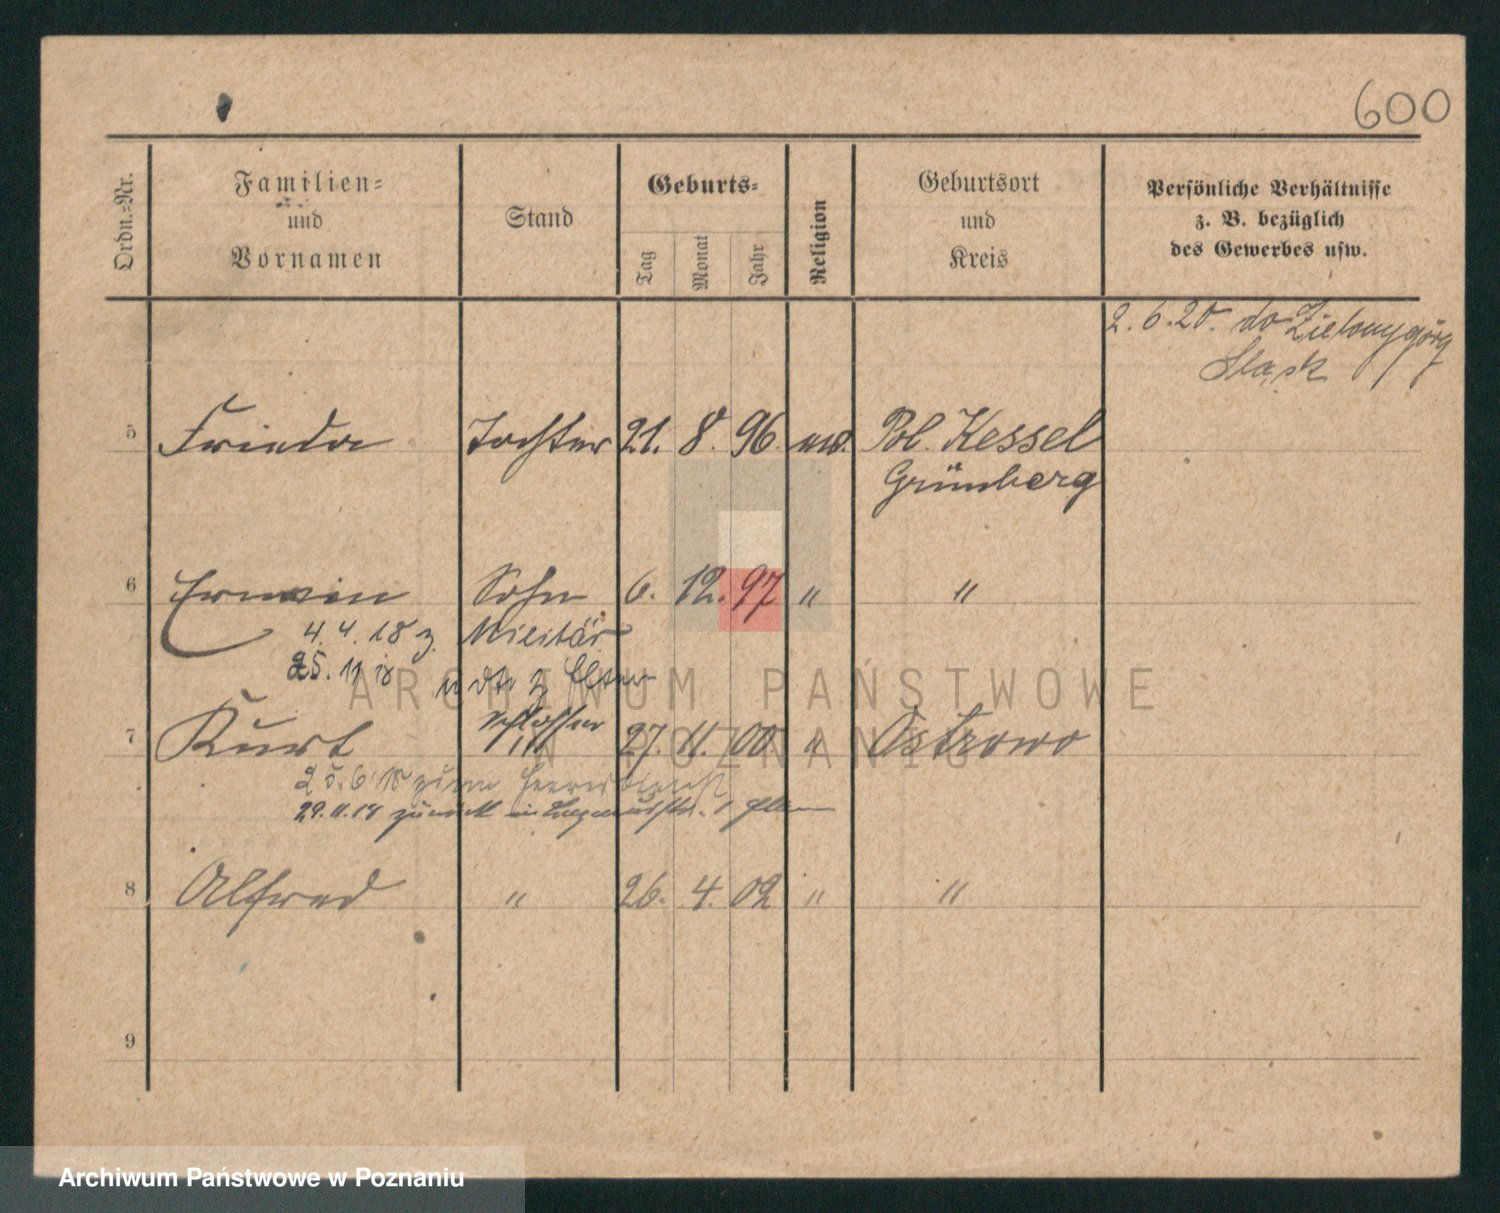 600
Ordn.-Nr.
Familien-
und
Vornamen
Stand
Geburts-
Tag
Monat
Jahr
Religion
Geburtsort
und
Kreis
Persönliche Verhältnisse
z. B. bezüglich
des Gewerbes usw.
2.6.20. do Zielonygórg
Slask
5 Frieda Tochter 21. 8. 96. Pol. Kessel
Grünberg
6 Erwin Sohn 6. 12. 97 " "
4.4.18 z. Militär
25.11.18 z Eltern
7 Kurt Schlosser 27. 11. 00. " Ostrowo
25.6.18 zum Heeresdienst
29.11.18 zurück
8 Alfred " 26. 4. 02 " "
9
ARCHIWUM PAŃSTWOWE
W POZNANIU
Archiwum Państwowe w Poznaniu